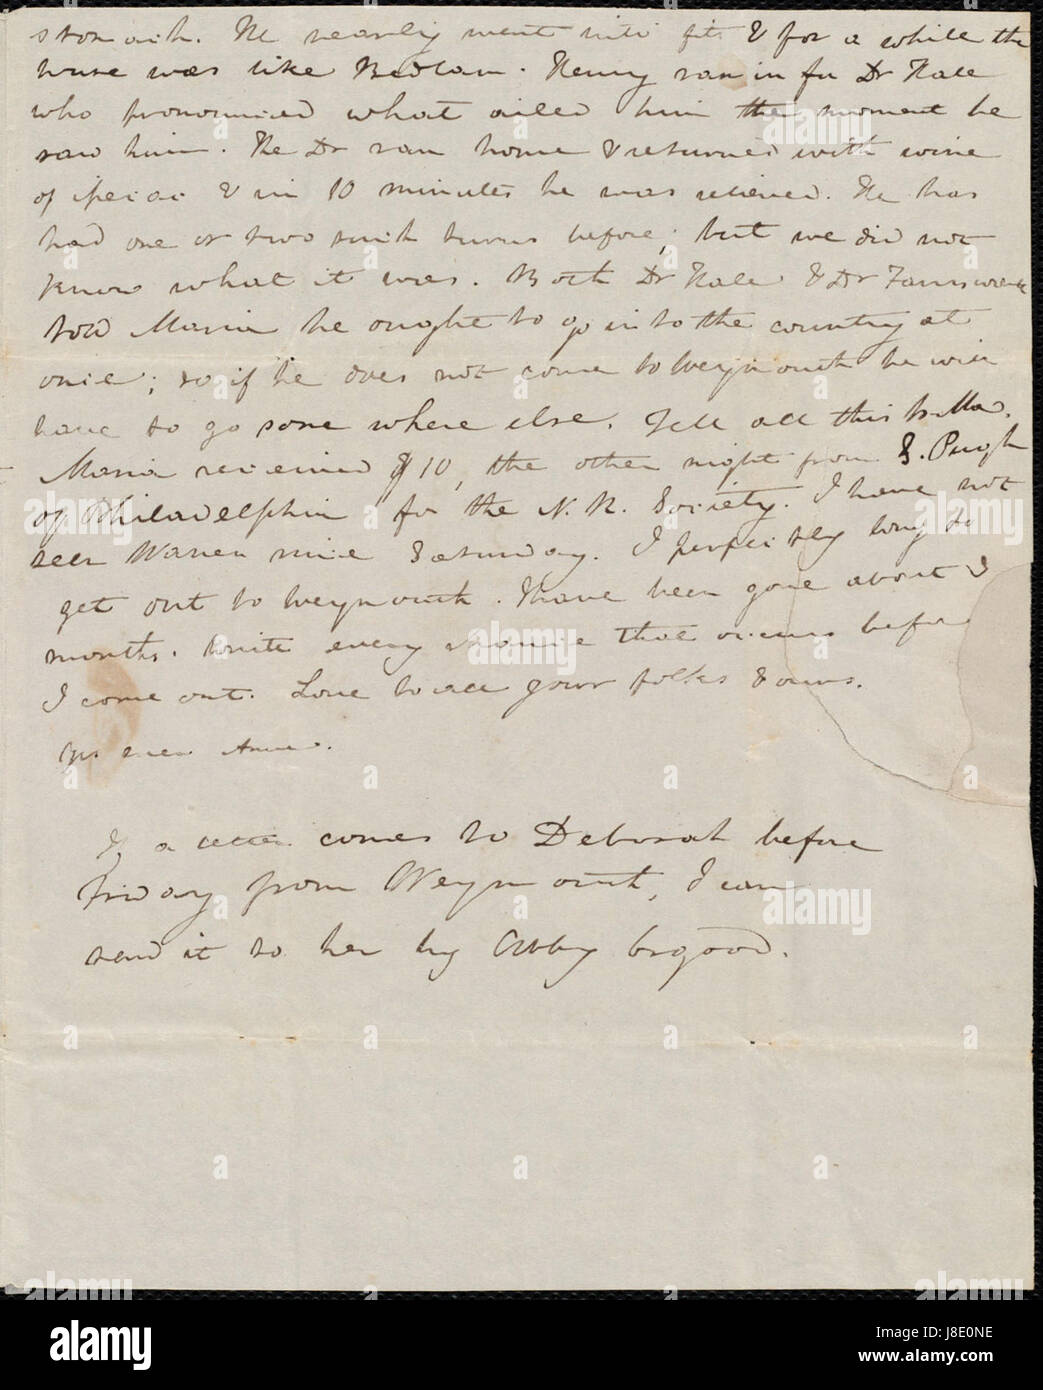 stomach. He nearly went into fits & for a while the
house was like Bedlam. Henry ran in for Dr Hale
who pronounced what ailed him the moment he
saw him. The Dr ran home & returned with wine
of ipecac & in 10 minutes he was relieved. He has
had one or two such turns before, but we did not
know what it was. Both Dr Hale & Dr Farnsworth
told Maria he ought to go into the country at
once; so if he does not come to Weymouth he will
have to go some where else. Tell all this to Ma.
Maria received $10, the other night from S. Pugh
of Philadelphia for the N. R. Society. I have not
seen Warren since Saturday. I perfectly long to
get out to Weymouth. I have been gone about 2
months. Write every chance that occurs before
I come out. Love to all your folks & ours.
Yrs ever Anne.
If a letter comes to Deborah before
Friday from Weymouth, I can
send it to her by Abby Osgood.
alamy
Image ID: J8E0NE
www.alamy.com